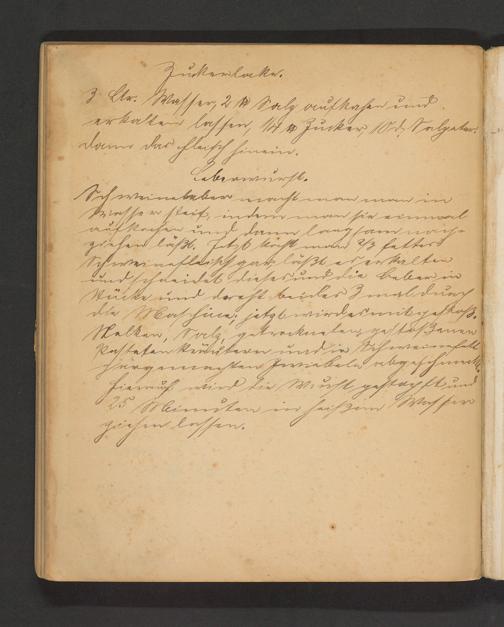 Zuckerlake.
3 Ltr. Wasser, 2 ℔ Salz aufkochen und
erkalten lassen, 1/4 ℔ Zucker, 10 d. Salpeter.
Dann das Fleisch hinein.
Leberwurst.
Schweineleber macht man nun in
Wasser steif, indem man sie einmal
aufkochen und dann langsam nach-
ziehen läßt. Jetzt kocht man 2/3 fettes
Schweinefleisch gar, läßt es erkalten
und schneidet dieses und die Leber in
Stücke und dreht beides 3 mal durch
die Maschine, jetzt wird es mit gestoß.
Nelken, Salz, getrockneten gestoßenen
Pastetenkräutern und in Schweinefett
gargemachten Zwiebeln abgeschmeckt.
Hierauf wird die Wurst gestopft und
25 Minuten in heißem Wasser
ziehen lassen.